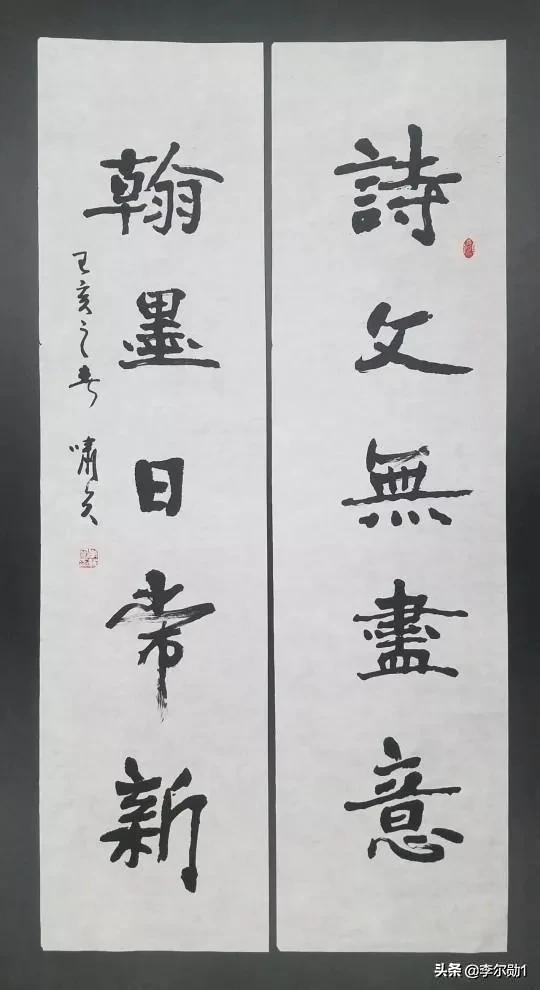 詩文無盡意
翰墨日常新
亥之春 嘯天
头条 @李尔勋1